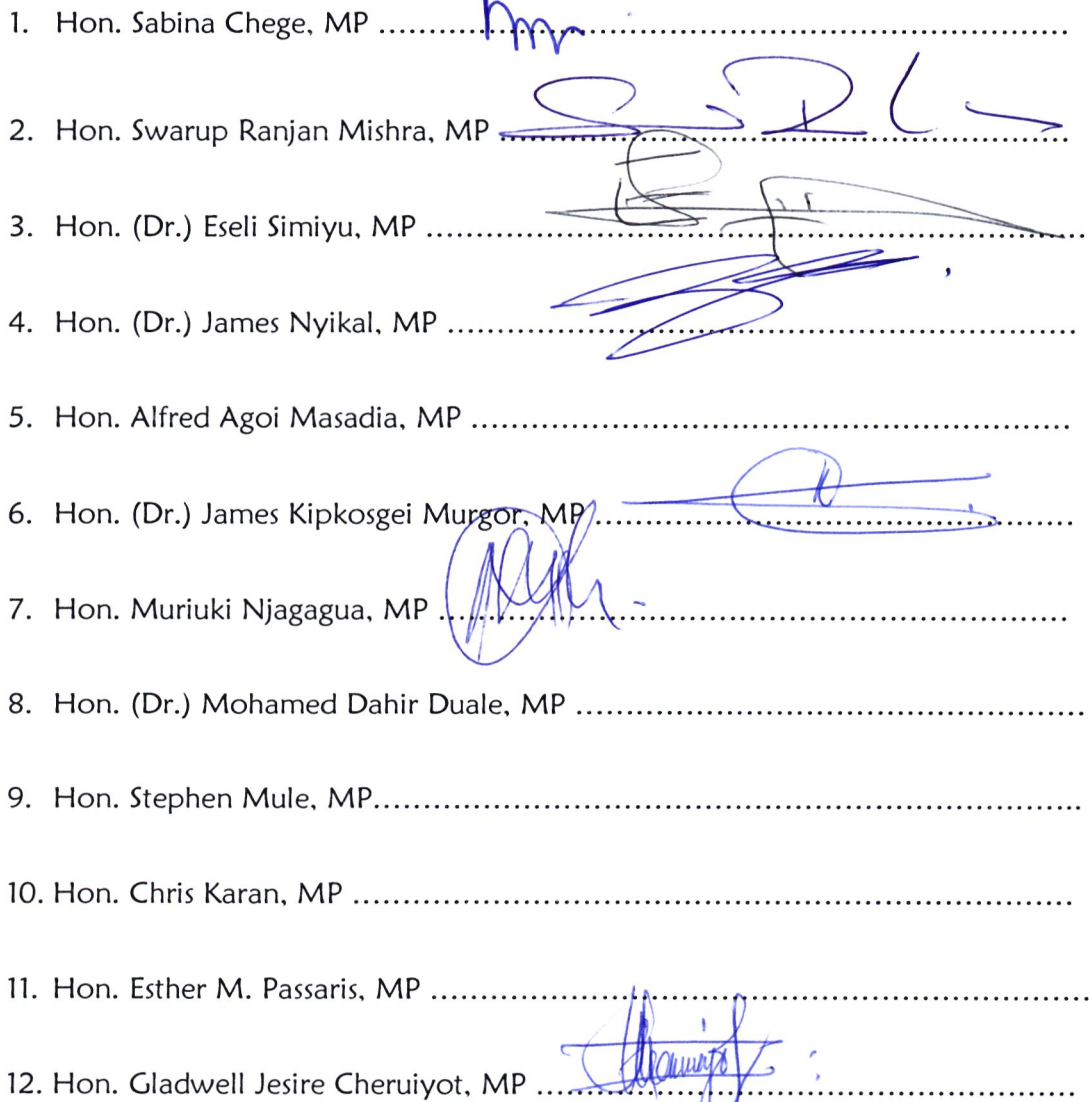 1. Hon. Sabina Chege, MP ........................................................................
2. Hon. Swarup Ranjan Mishra, MP ........................................................................
3. Hon. (Dr.) Eseli Simiyu, MP ........................................................................
4. Hon. (Dr.) James Nyikal, MP ........................................................................
5. Hon. Alfred Agoi Masadia, MP ........................................................................
6. Hon. (Dr.) James Kipkosgei Murgor, MP ........................................................................
7. Hon. Muriuki Njagagua, MP ........................................................................
8. Hon. (Dr.) Mohamed Dahir Duale, MP ........................................................................
9. Hon. Stephen Mule, MP........................................................................
10. Hon. Chris Karan, MP ........................................................................
11. Hon. Esther M. Passaris, MP ........................................................................
12. Hon. Gladwell Jesire Cheruiyot, MP ........................................................................